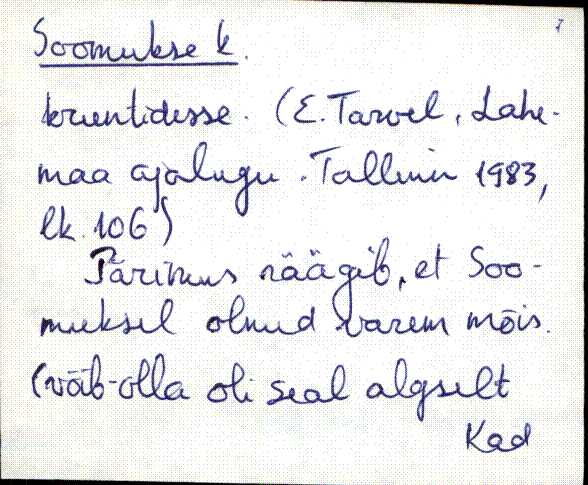 7
Soomukse k.
kruntidesse. (E. Tarvel, Lahe-
maa ajalugu. Tallinn 1983,
lk. 106)
Pärimus räägib, et Soo-
muksel olnud varem mõis.
(võib-olla oli seal algselt
Kad